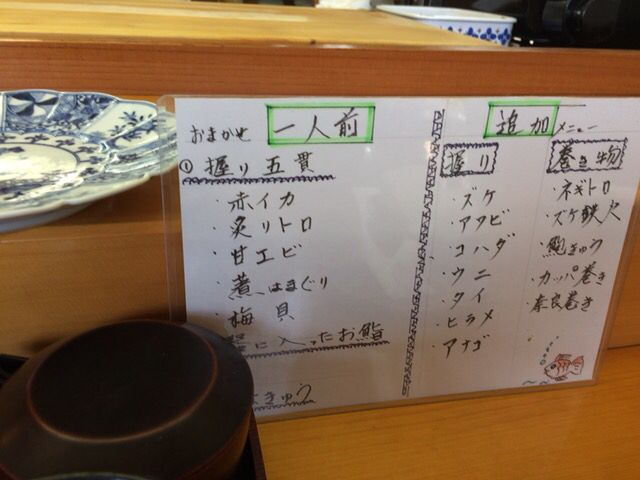 おまかせ 一人前
① 握り五貫
・赤イカ
・炙リトロ
・甘エビ
・煮はまぐり
・梅貝
に入ったお鮨
きゅう
追加メニュー
握り
・ズケ
・アワビ
・コハダ
・ウニ
・タイ
・ヒラメ
・アナゴ
巻き物
・ネギトロ
・ズケ鉄火
・鮑きゅう
・カッパ巻き
・奈良巻き